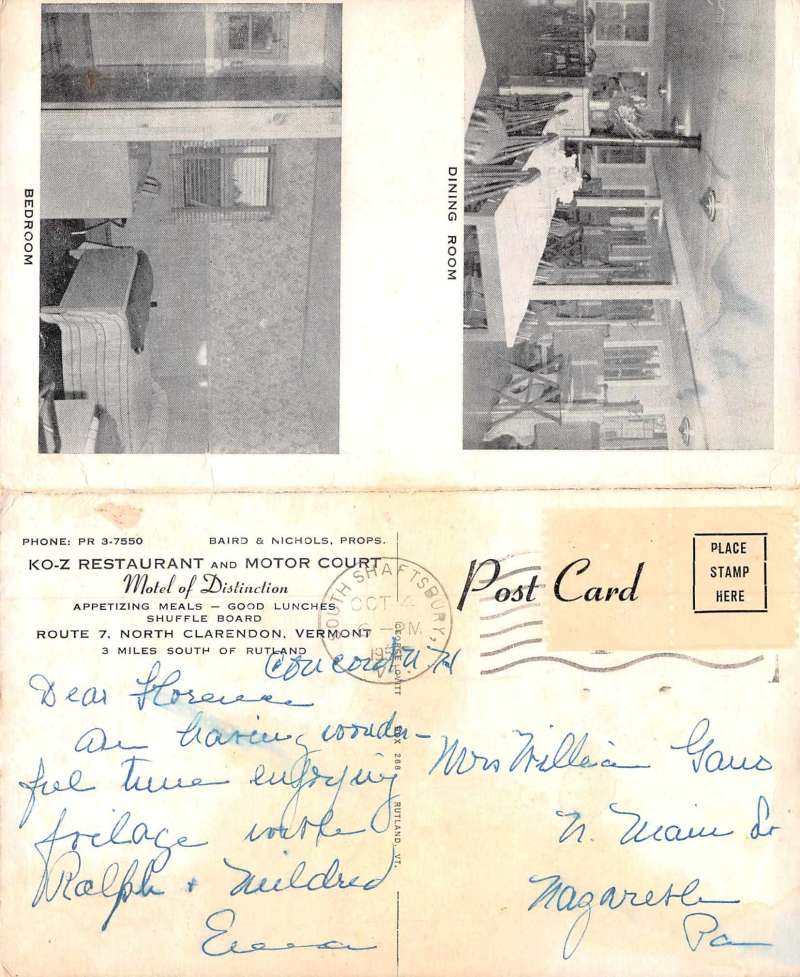 BEDROOM
DINING ROOM
PHONE: PR 3-7550 BAIRD & NICHOLS, PROPS.
KO-Z RESTAURANT AND MOTOR COURT
Motel of Distinction
APPETIZING MEALS — GOOD LUNCHES
SHUFFLE BOARD
ROUTE 7, NORTH CLARENDON, VERMONT
3 MILES SOUTH OF RUTLAND
SOUTH SHAFTSBURY,
OCT 4
6 - PM
Post Card
PLACE
STAMP
HERE
BOX 268 RUTLAND, VT.
Concord N H
Dear Florence
Am having wonder-
ful time enjoying
foilage with
Ralph + Mildred
Emma
Mrs William
N. Main St
Nazareth
Pa